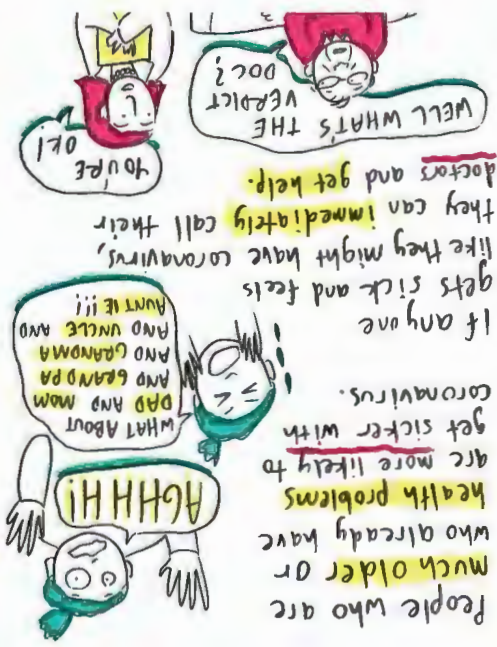 People who are
much older or
who already have
health problems
are more likely to
get sicker with
coronavirus.
AGHHH!
WHAT ABOUT
DAD AND MOM
AND GRANDPA
AND GRANDMA
AND UNCLE AND
AUNTIE!!!
If anyone
gets sick and feels
like they might have coronavirus,
they can immediately call their
doctors and get help.
WELL WHAT'S THE
VERDICT
DOC?
YOU'RE
OK!